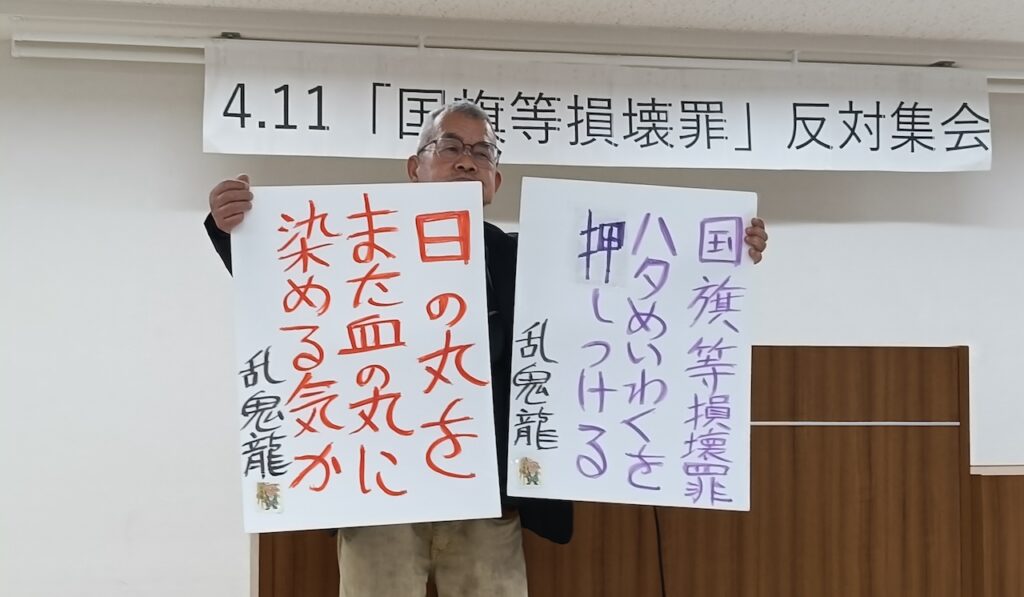 4.11「国旗等損壊罪」反対集会
国旗、等損壊罪
ハタめいわくを
押しつける
乱鬼龍
日の丸を
また血の丸に
染める気か
乱鬼龍